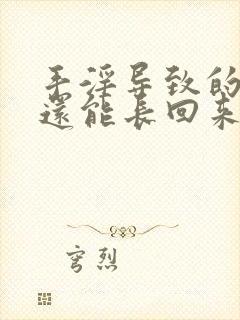 手淫导致的
還能長回来
穹烈